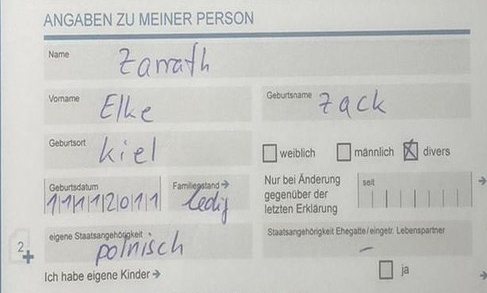 ANGABEN ZU MEINER PERSON
Name
Zarrath
Vorname
Elke
Geburtsname
Zack
Geburtsort
Kiel
weiblich
männlich
divers
Geburtsdatum
11112011
Familienstand →
ledig
Nur bei Änderung
gegenüber der
letzten Erklärung
seit
eigene Staatsangehörigkeit
polnisch
Staatsangehörigkeit Ehegatte/eingetr. Lebenspartner
–
2
Ich habe eigene Kinder →
ja